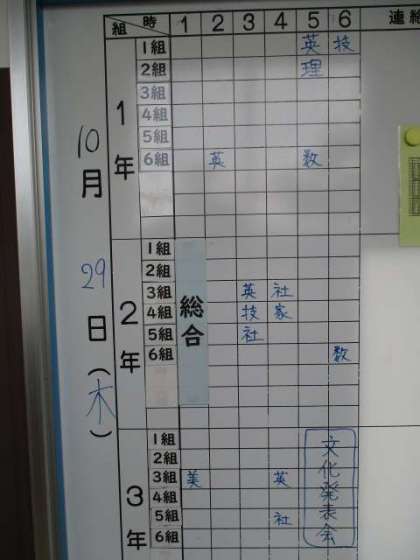 組 時 1 2 3 4 5 6 連絡
10月29日(木)
1年
1組 英 技
2組 理
3組
4組
5組
6組 英 数
2年
総合
1組
2組
3組 英 社
4組 技 家
5組 社
6組 数
3年
文化発表会
1組
2組
3組 美 英
4組
5組 社
6組